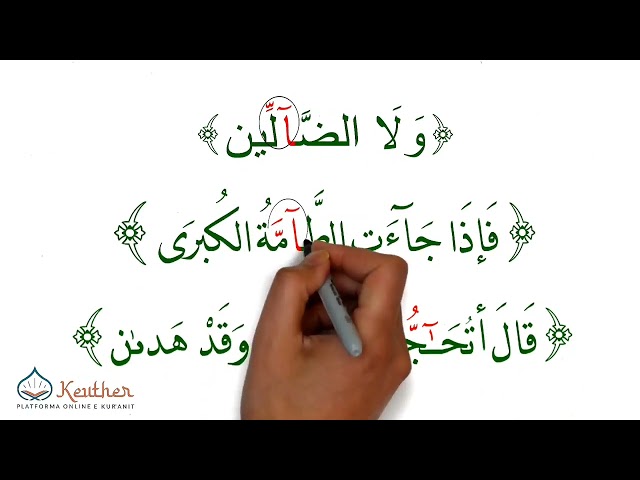 ﴿وَلَا الضَّآلِّين﴾
﴿فَإِذَا جَآءَتِ الطَّآمَّةُ الكُبرَى﴾
﴿قَالَ أتُحَـآجُّ وَقَدْ هَدىٰن﴾
Keuther
PLATFORMA ONLINE E KUR'ANIT